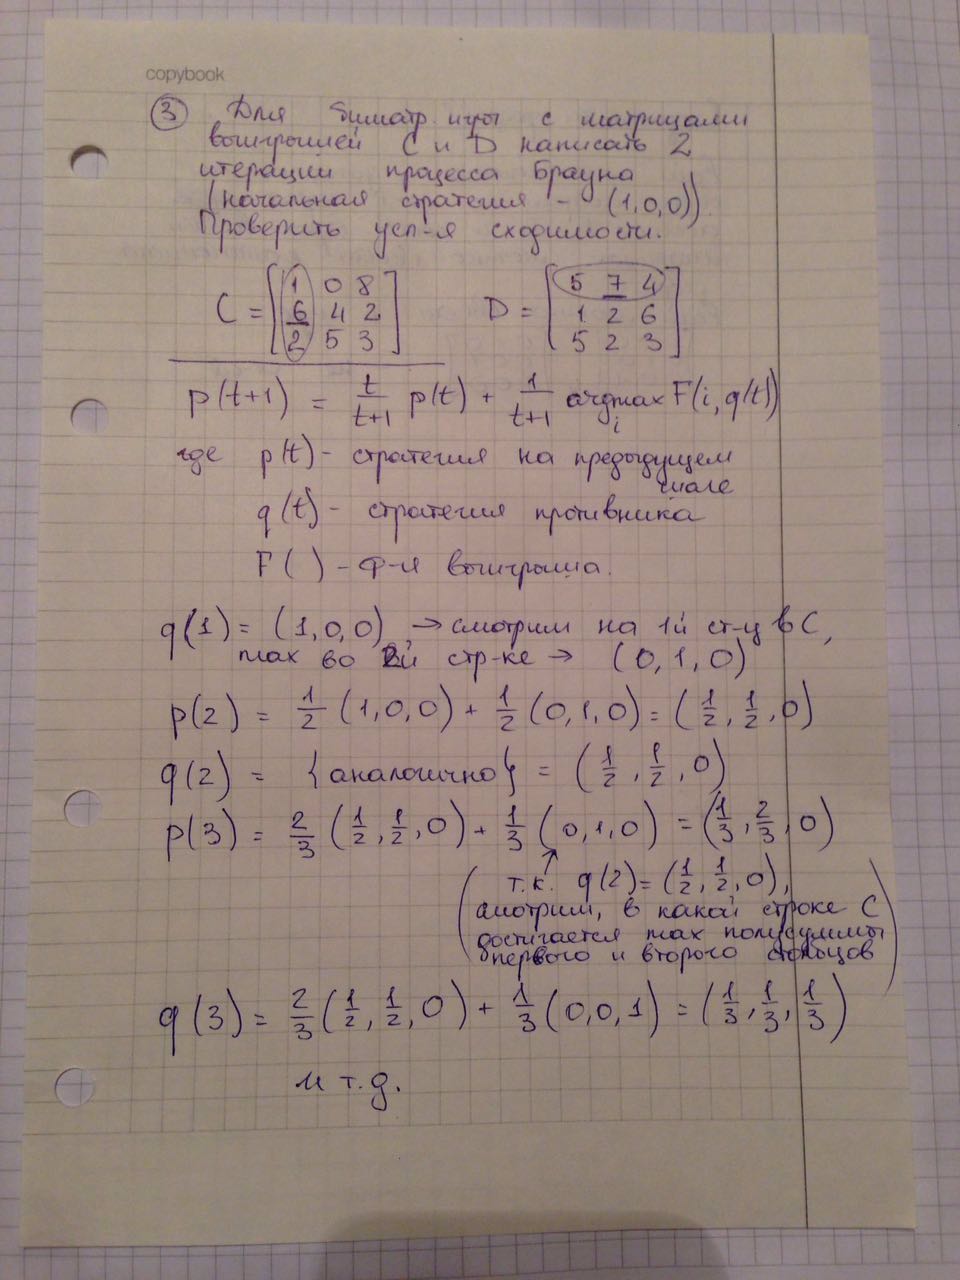 copybook
③ Для биматр игры с матрицами
выигрышей C и D написать 2
итерации процесса Брауна
(начальная стратегия - (1,0,0))
Проверить усл-я сходимости.
C = [1 0 8; 6 4 2; 2 5 3] D = [5 7 4; 1 2 6; 5 2 3]
p(t+1) = t/(t+1) p(t) + 1/(t+1) argmax_i F(i, q(t))
где p(t) - стратегия на предыдущем
шаге
q(t) - стратегия противника
F( ) - ф-я выигрыша.
q(1) = (1,0,0) → смотрим на 1й ст-ц в C,
max во 2й стр-ке → (0,1,0)
p(2) = 1/2 (1,0,0) + 1/2 (0,1,0) = (1/2, 1/2, 0)
q(2) = {аналогично} = (1/2, 1/2, 0)
p(3) = 2/3 (1/2, 1/2, 0) + 1/3 (0,1,0) = (1/3, 2/3, 0)
(т.к. q(2) = (1/2, 1/2, 0),
смотрим, в какой строке C
достигается max полусуммы
первого и второго столбцов)
q(3) = 2/3 (1/2, 1/2, 0) + 1/3 (0,0,1) = (1/3, 1/3, 1/3)
и т.д.